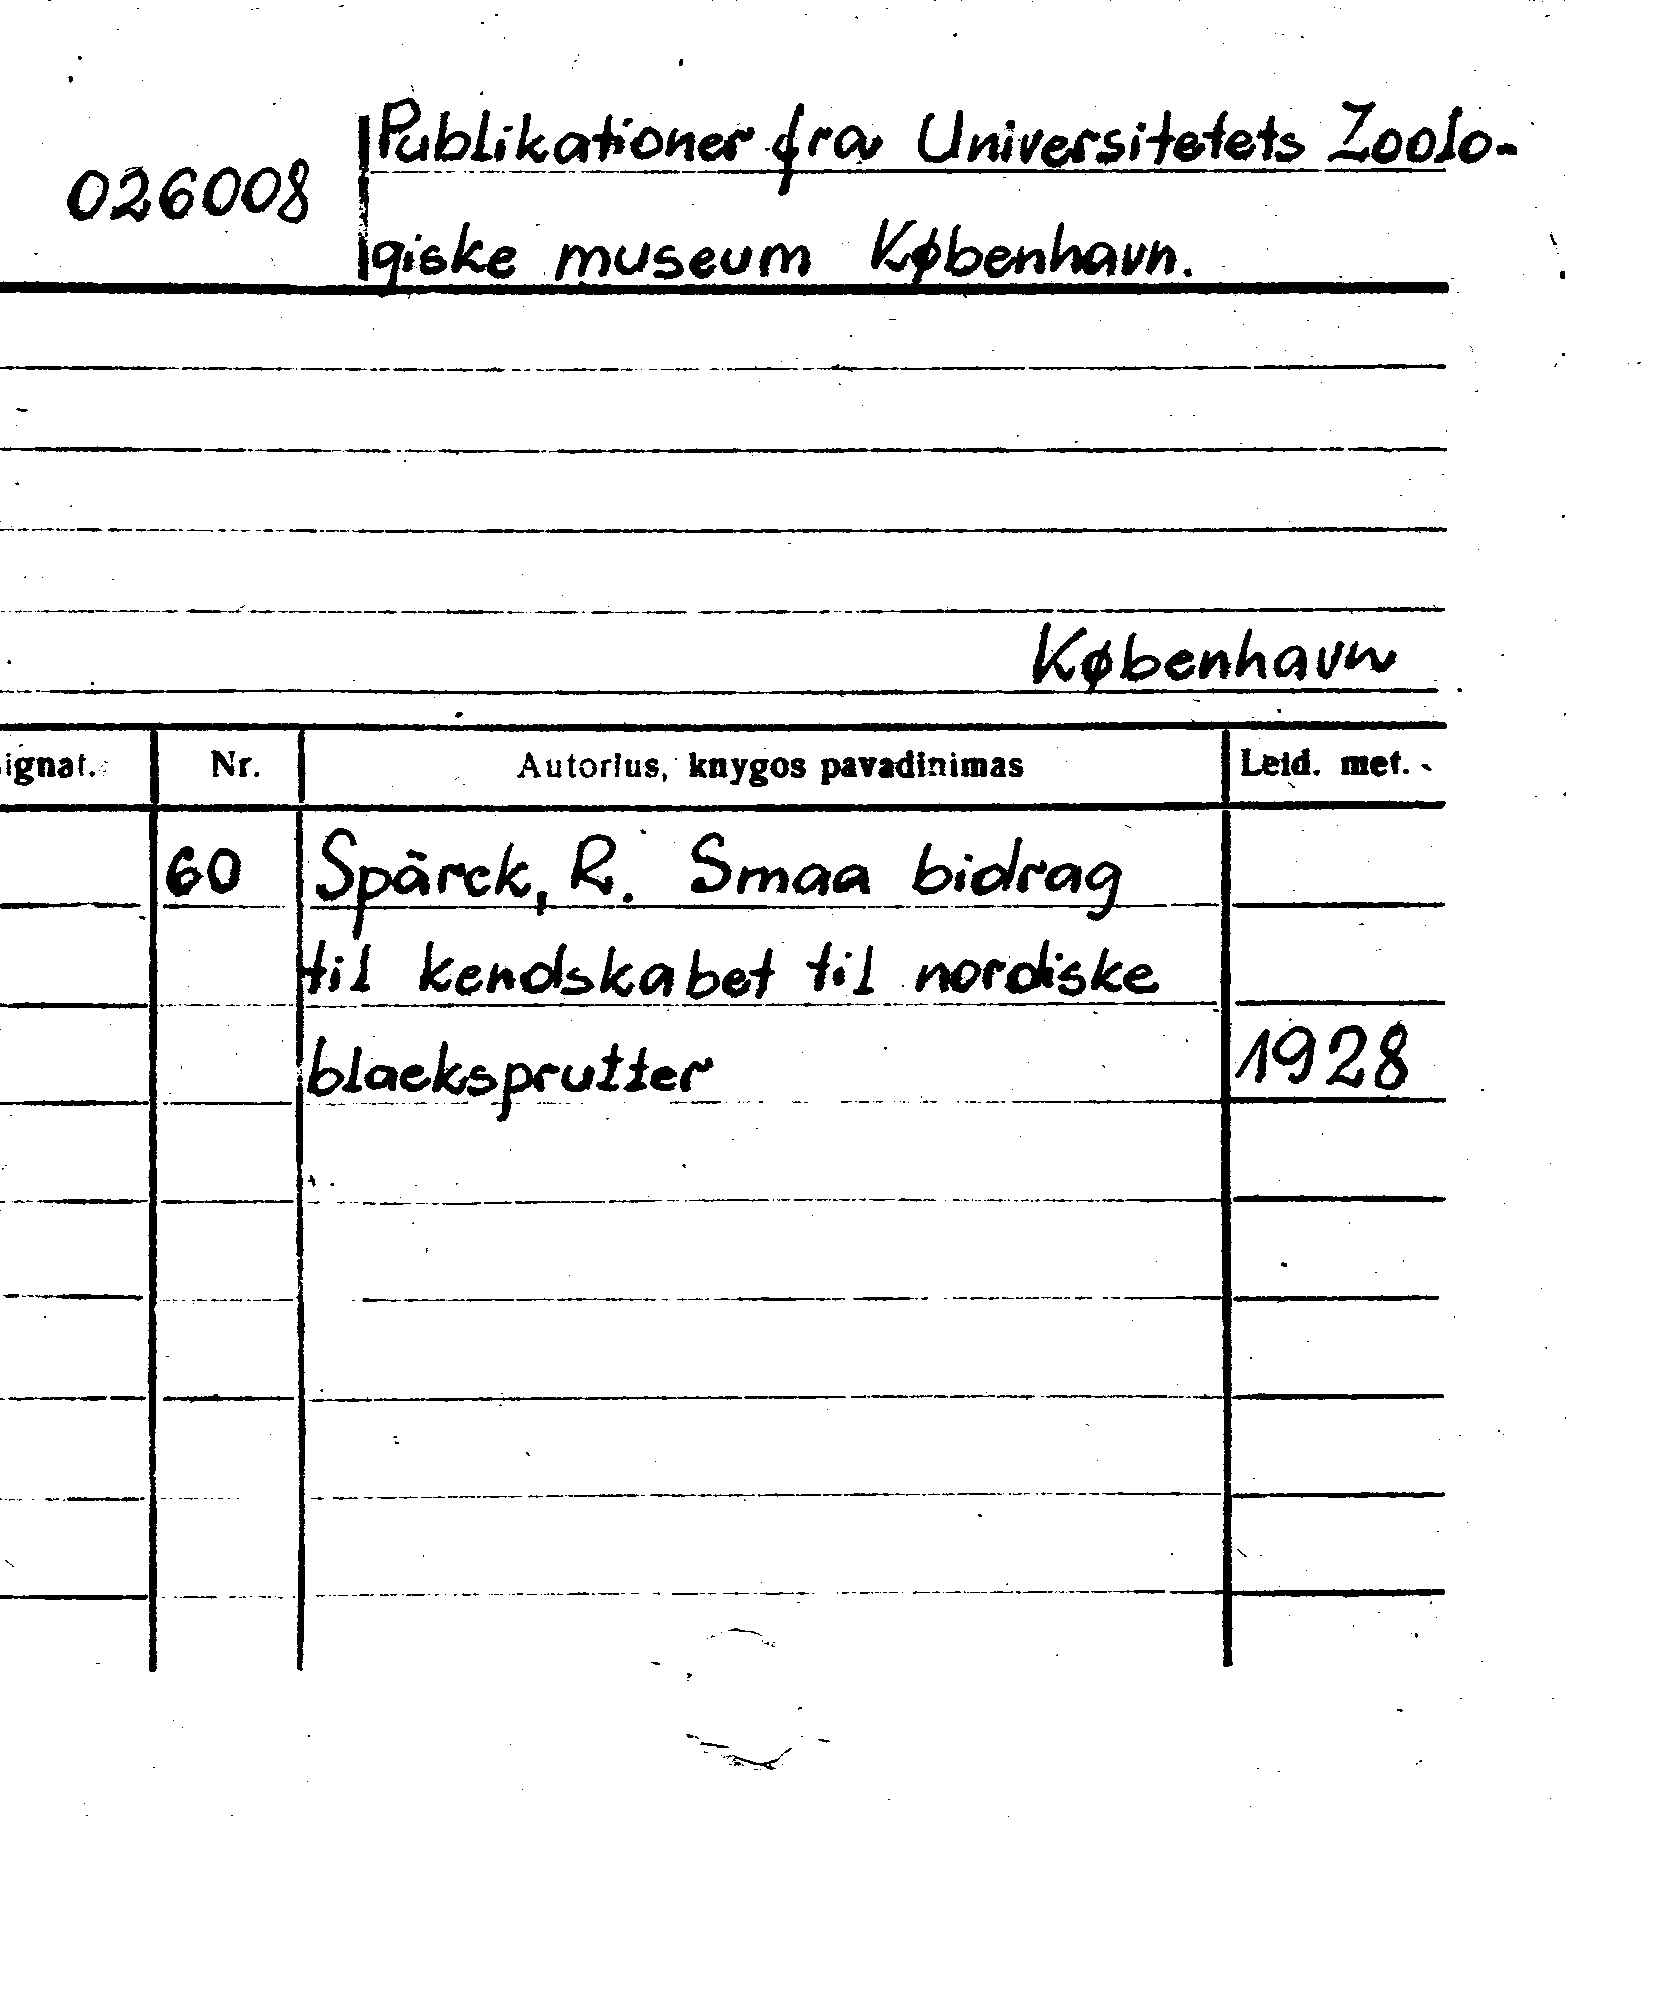 Publikationer fra Universitetets Zoolo-
026008
giske museum København.
København
ignat. Nr. Autorius, knygos pavadinimas Leid. met.
60 Spärck, R. Smaa bidrag
til kendskabet til nordiske
blaeksprutter 1928